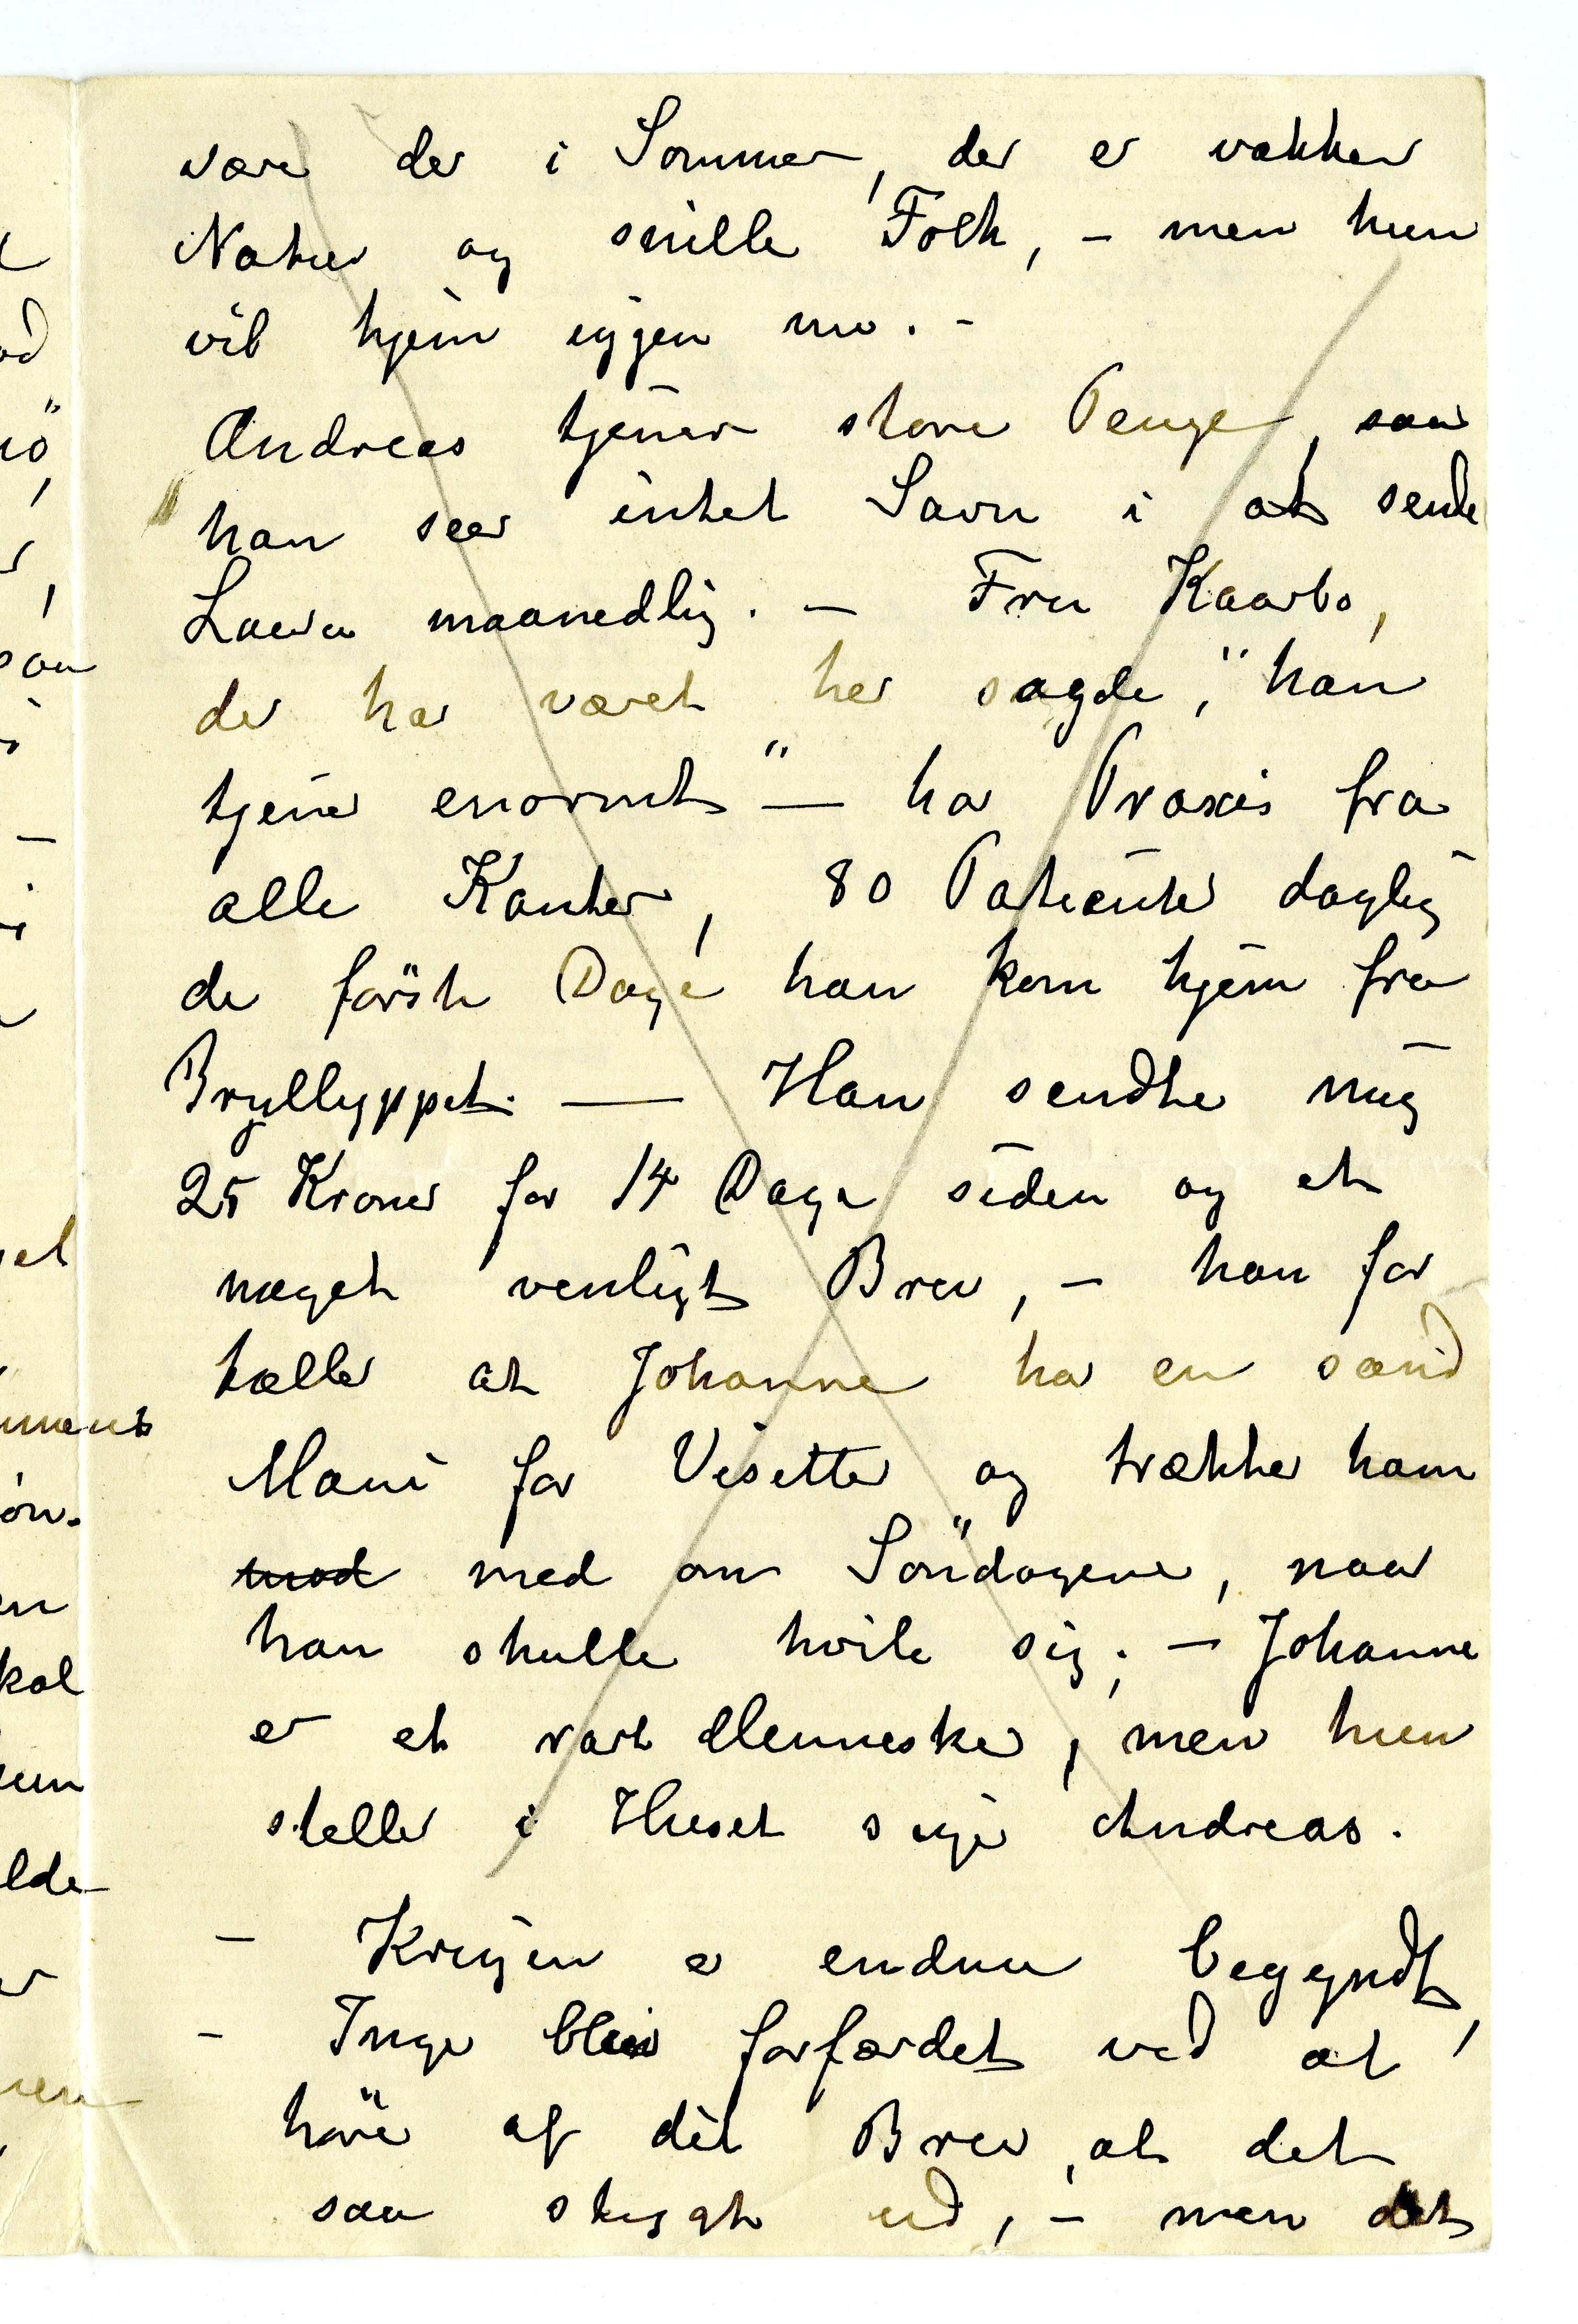 være der i Sommer, der er vakker
Natur og snille Folk, - men hun
vil hjem iggjen nu. -
Andreas tjener store Penge, saa
han seer intet Savn i at sende
Laura maanedlig. - Fru Kaarbø,
der har været her sagde, "han
tjener enormt" - har Praxis fra
alle Kanter, 80 Patienter daglig
de første Dage han kom hjem fra
Bryllyppet. — Han sendte mig
25 Kroner for 14 Dage siden og et
meget venligt Brev, - han for
tæller at Johanne har en sand
Mani for Visitter og trækker ham
mod med om Søndagene, naar
han skulle hvile sig; - Johanne
er et rart Menneske, men hun
steller i Huset siger Andreas.
- Krigen er endnu begyndt,
- Inga blev forfærdet ved at
høre af dit Brev, at det
saa stygt ud, - men det